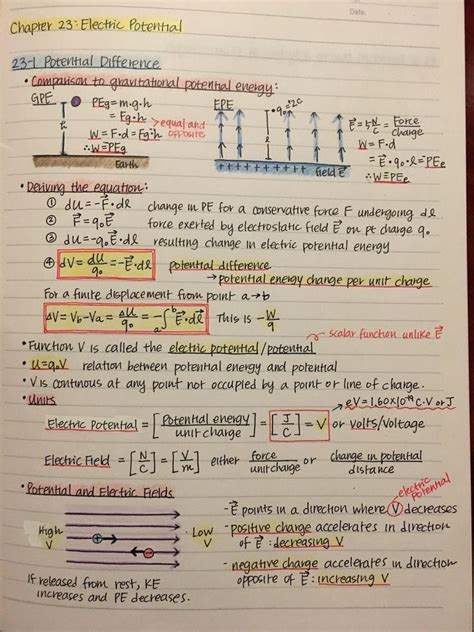 Date.
Chapter 23: Electric Potential
23-1 Potential Difference
• Comparison to gravitational potential energy:
GPE
PEg = m·g·h
= Fg·h
W = F·d = Fg·h
∴W=PEg
h
> equal and opposite
Earth
EPE
• q₀ = 2C
+ + + + + + + + + + + +
field E⃗
E⃗ = 5 N/C = Force/charge
W = F·d
= E⃗·q₀·l = PEe
∴ W=PEe
• Deriving the equation:
① dU = -F⃗·dl change in PE for a conservative force F undergoing dl
② F⃗ = q₀E⃗ force exerted by electrostatic field E⃗ on pt charge q₀
③ dU = -q₀E⃗·dl resulting change in electric potential energy
④ dV = dU/q₀ = -E⃗·dl potential difference
→ potential energy change per unit charge
For a finite displacement from point a→b
ΔV = Vb - Va = ΔU/q₀ = -∫ₐᵇ E⃗·dl This is -W/q
→ scalar function unlike E⃗
• Function V is called the electric potential/potential
• U=q₀V relation between potential energy and potential
• V is continous at any point not occupied by a point or line of charge.
• Units
→ eV = 1.60×10⁻¹⁹ C·V or J
Electric Potential = [Potential energy/unit charge] = [J/C] = V or volts/Voltage
Electric Field = [N/C] = [V/m] either force/unit charge or change in potential/distance
• Potential and Electric Fields
electric potential
High V
Low V
+
-
- E⃗ points in a direction where V decreases
- positive charge accelerates in direction of E⃗: decreasing V
- negative charge accelerates in direction opposite of E⃗: increasing V
If released from rest, KE
increases and PE decreases.